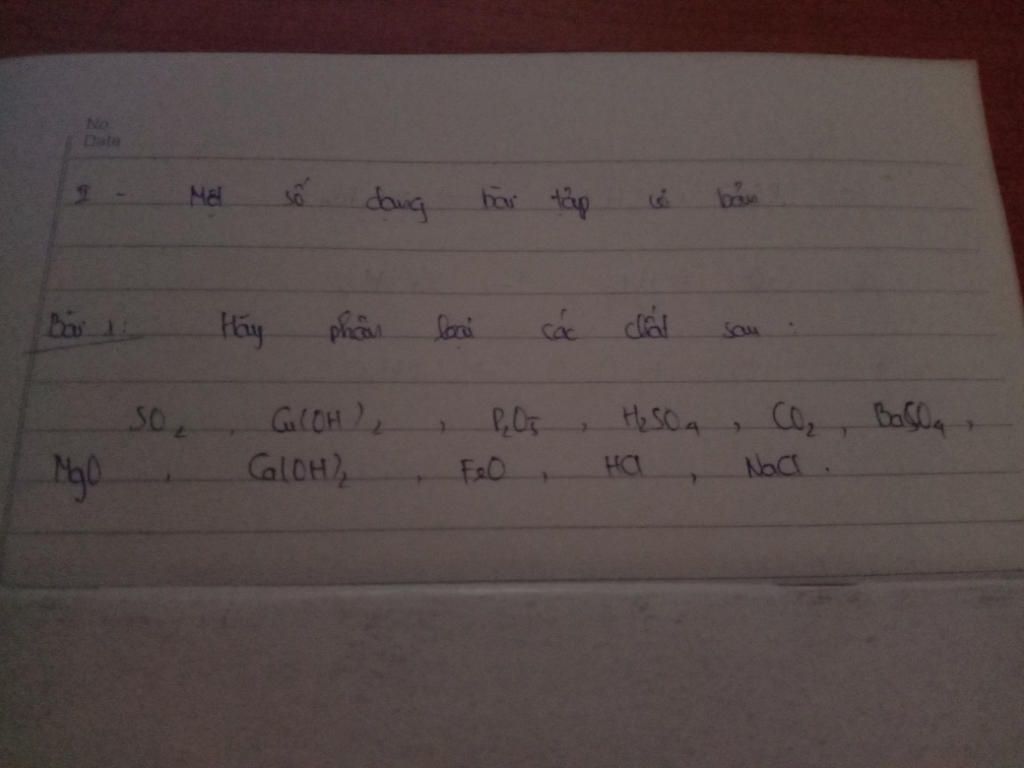 No.
Date
I - Một số dạng bài tập cơ bản.
Bài 1: Hãy phân loại các chất sau:
SO₂, Cu(OH)₂, P₂O₅, H₂SO₄, CO₂, BaSO₄,
MgO, Ca(OH)₂, FeO, HCl, NaCl.